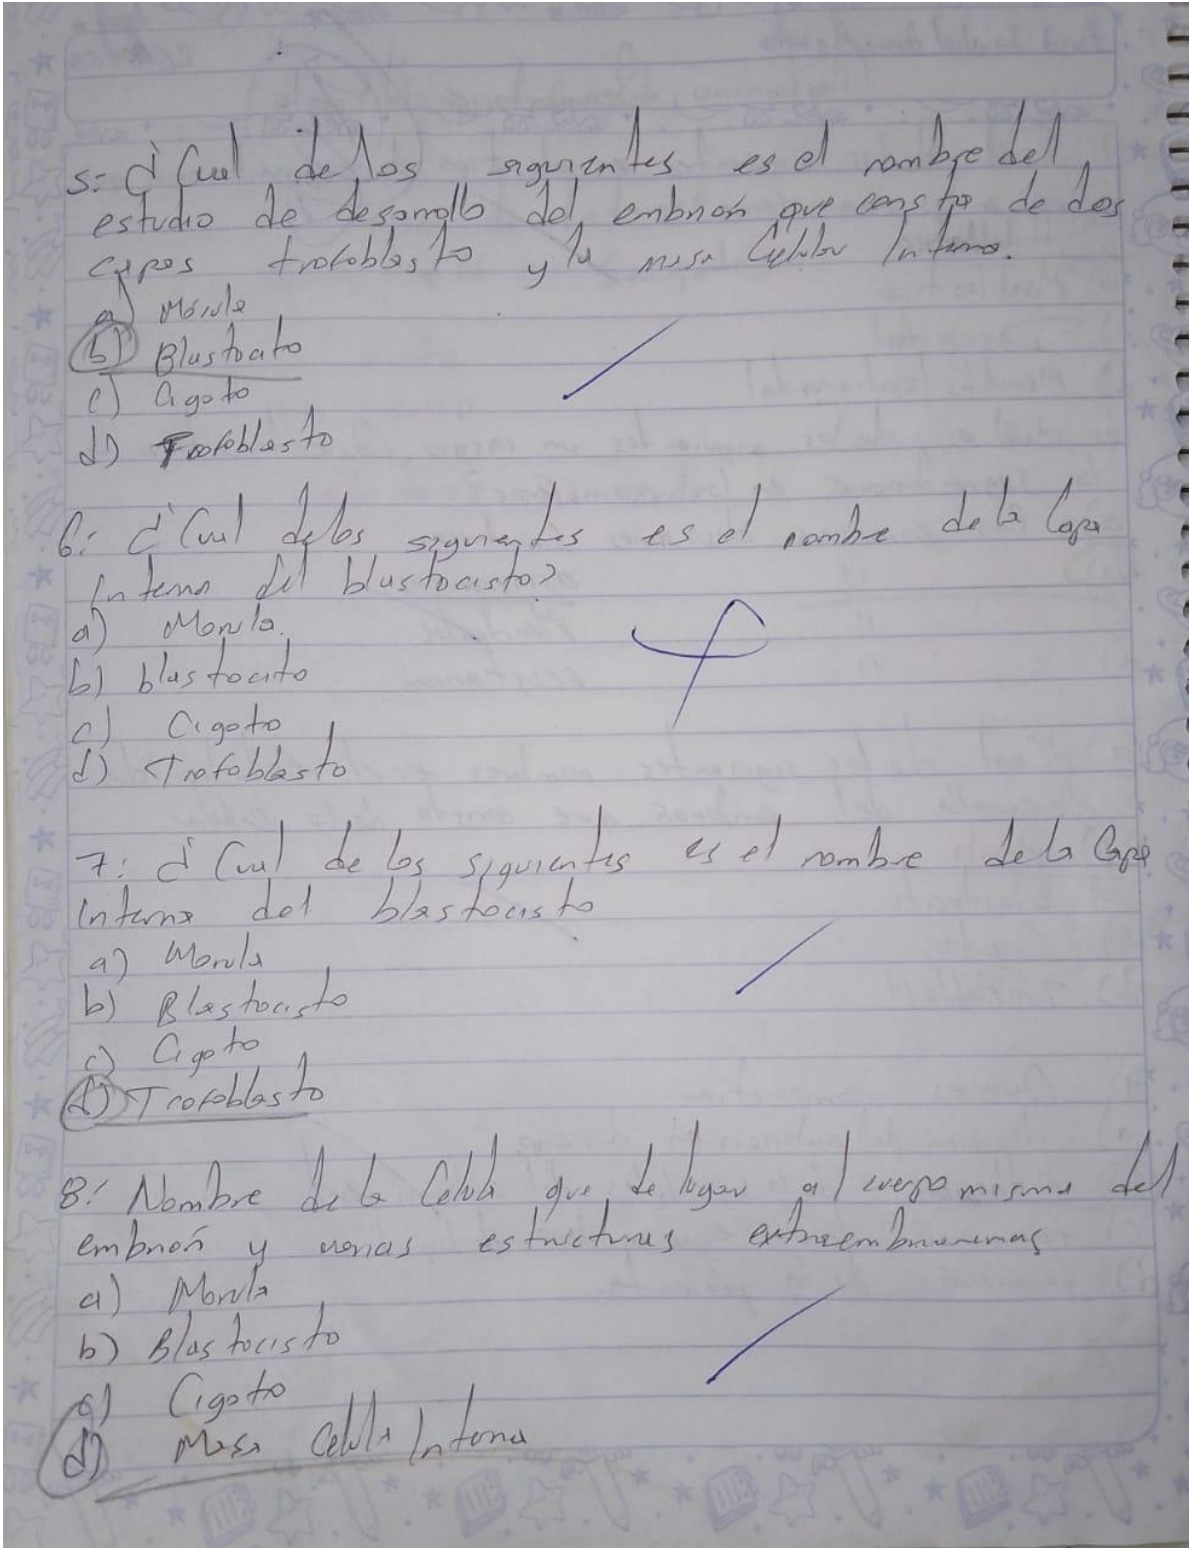 5: ¿Cual de los siguientes es el nombre del
estudio de desarrollo del embrión que consta de dos
capas trofoblasto y la masa Celular Interna.
a) Mórula
b) Blastocito
c) Cigoto
d) Trofoblasto
6: ¿Cual de los siguientes es el nombre de la Capa
Interna del blastocisto?
a) Morula.
b) blastocito
c) Cigoto
d) Trofoblasto
7: ¿Cual de los siguientes es el nombre de la Capa
interna del blastocisto
a) Morula
b) Blastocisto
c) Cigoto
d) Trofoblasto
8: Nombre de la Celula que da lugar al cuerpo mismo del
embrión y varias estructuras
a) Morula
b) Blastocisto
c) Cigoto
d) Masa Celula Interna